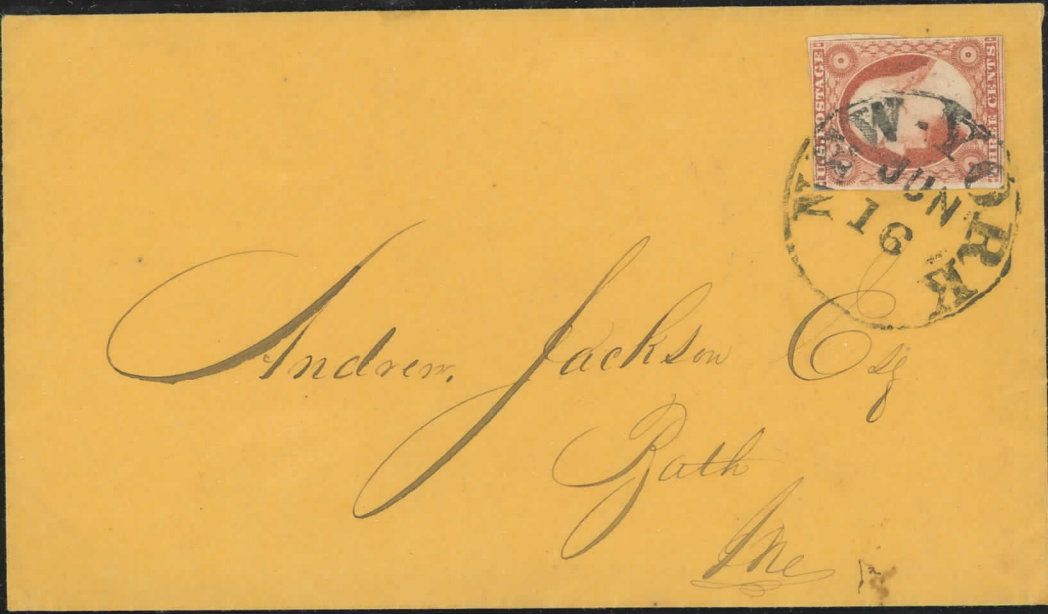 U.S. POSTAGE
THREE CENTS
NEW-YORK
JUN
16
Andrew Jackson Esq
Bath
Me